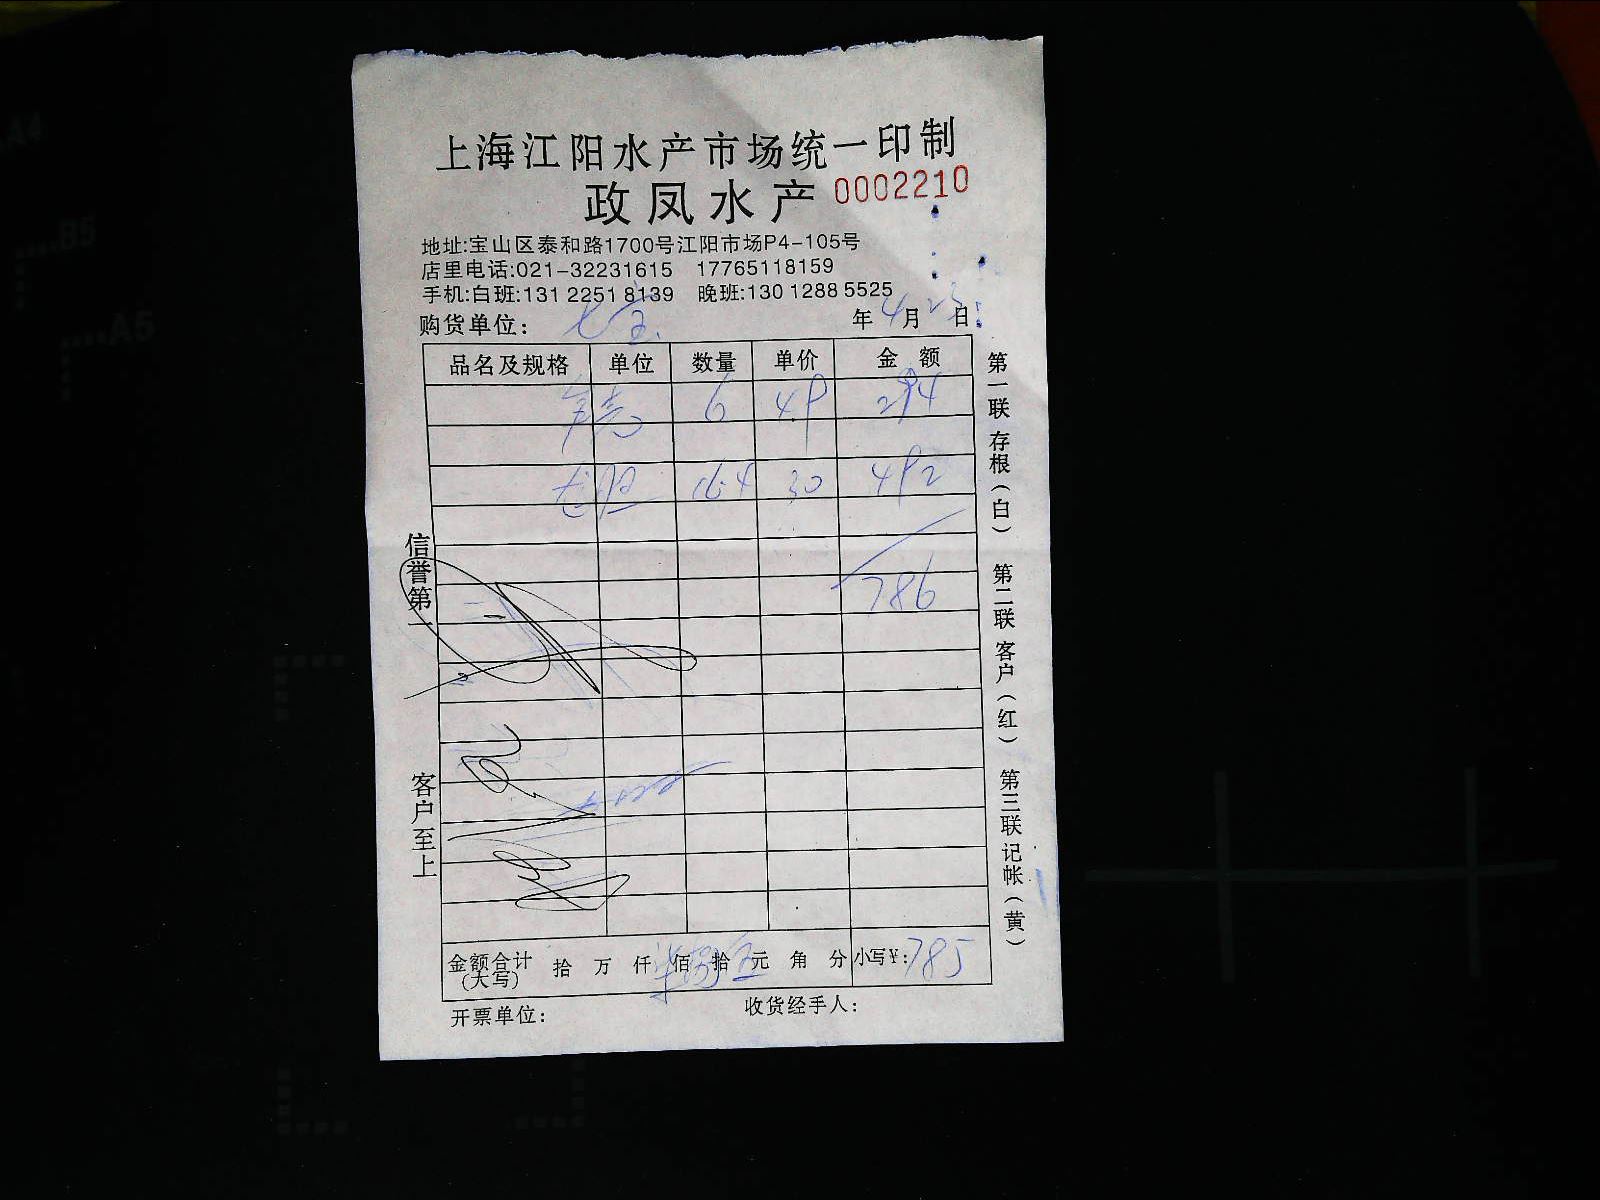 上海江阳水产市场统一印制
政凤水产 0002210
地址:宝山区泰和路1700号江阳市场P4-105号
店里电话:021-32231615 17765118159
手机:白班:131 2251 8139 晚班:130 1288 5525
购货单位: 七宝 年4月23日
品名及规格 单位 数量 单价 金额
6 49 294
16.4 30 492
786
金额合计(大写) 拾 万 仟 柒佰 捌拾 五元 角 分 小写¥:785
开票单位: 收货经手人:
信誉第一 客户至上
第一联 存根(白) 第二联 客户(红) 第三联 记帐(黄)
A4
B5
A5